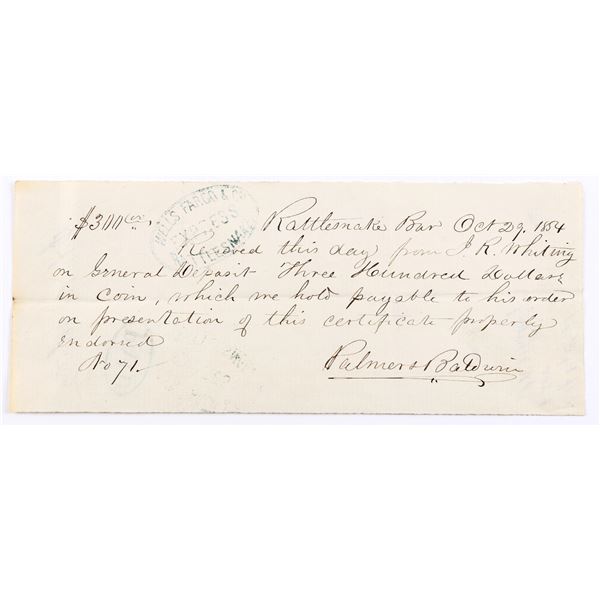 $300 00/xx
WELLS FARGO & CO
EXPRESS
RATTLESNAKE
Rattlesnake Bar Oct 29. 1854
Received this day from J. R. Whiting
on General Deposit Three Hundred Dollars
in Coin, which we hold payable to his order
on presentation of this certificate properly
Endorsed
No 71.
Palmer & Baldwin